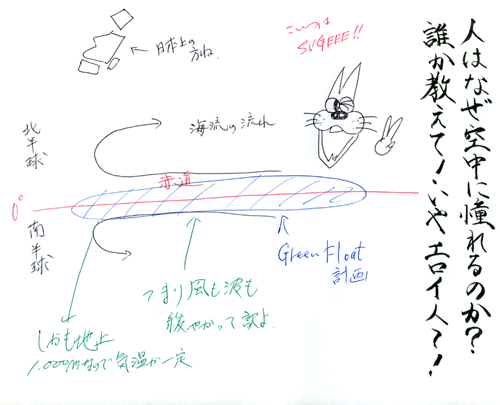 人はなぜ空中に憧れるのか?
誰か教えて!いやエロイ人て!
こいつは
SUGEEE!!
← 日本上の
方ね
海流の流れ
北半球
赤道
0°
南半球
Green Float
計画
つまり風も波も
緩やかって訳よ
しかも地上
1,000mなので気温が一定